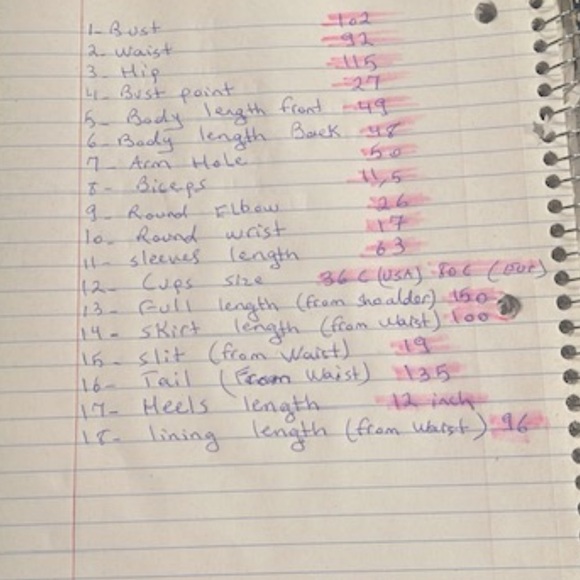 1- Bust 102
2- Waist 92
3- Hip 115
4- Bust point 27
5- Body length front 49
6- Body length Back 48
7- Arm Hole 50
8- Biceps 11,5
9- Round Elbow 26
10- Round wrist 17
11- sleeves length 63
12- Cups size 36 C (USA) 80 C (EUR)
13- Full length (from shoalder) 150
14- Skirt length (from waist) 100
15- slit (from Waist) 19
16- Tail (From Waist) 135
17- Heels length 12 inch
18- lining length (from waist) 96